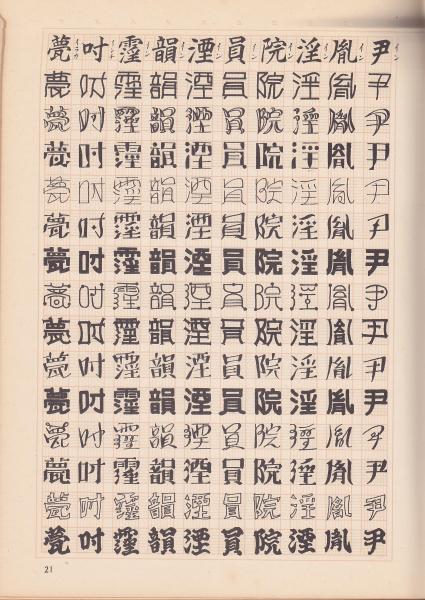 尹尹尹尹尹尹尹尹尹尹尹尹尹尹尹
イン
胤胤胤胤胤胤胤胤胤胤胤胤胤胤胤
イン
淫淫淫淫淫淫淫淫淫淫淫淫淫淫淫
イン
院院院院院院院院院院院院院院院
イン
員員員員員員員員員員員員員員員
イン
湮湮湮湮湮湮湮湮湮湮湮湮湮湮湮
イン
韻韻韻韻韻韻韻韻韻韻韻韻韻韻韻
イン
霪霪霪霪霪霪霪霪霪霪霪霪霪霪霪
イン
吋吋吋吋吋吋吋吋吋吋吋吋吋吋吋
甍甍甍甍甍甍甍甍甍甍甍甍甍甍甍
21